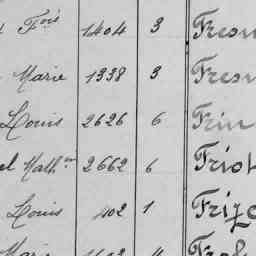 Fois 1404 3 Fresn
Marie 1338 3 Fresn
Louis 2626 6 Frin
el Mathin 2662 6 Friot
Louis 402 1 Frizo